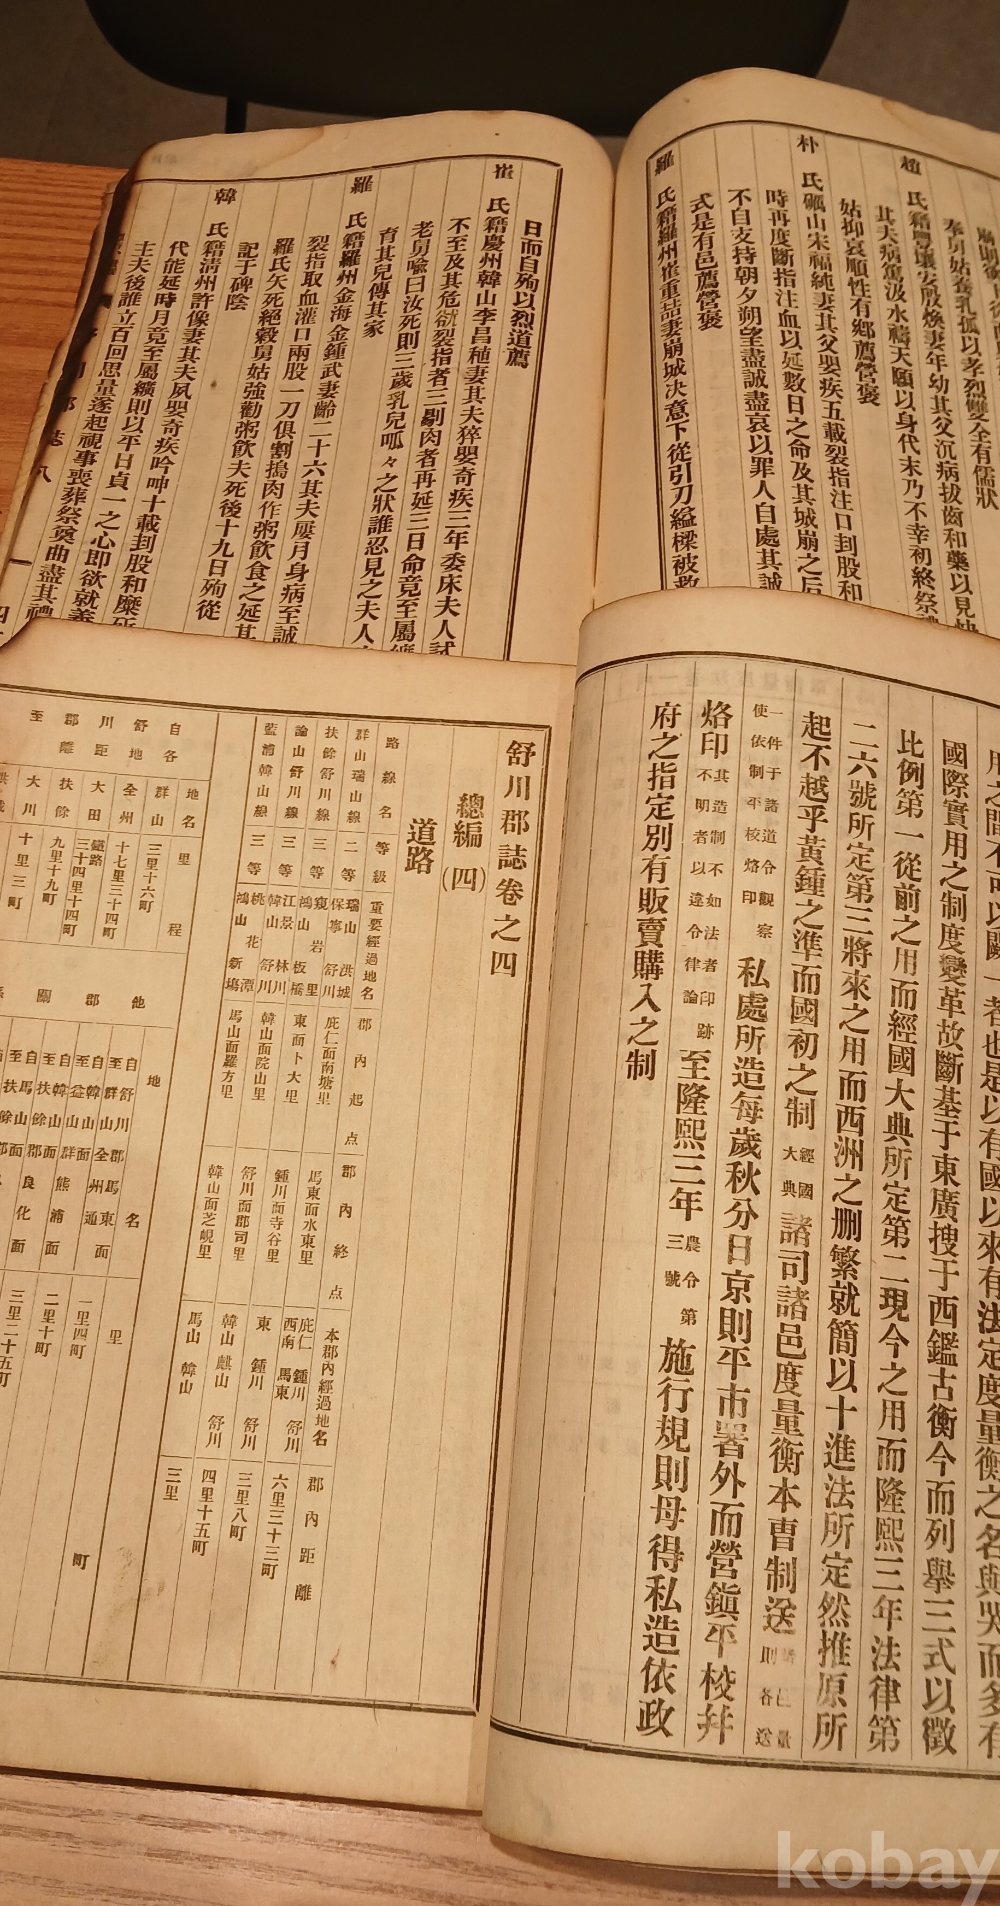 奉舅姑養乳孤以孝烈雙全有儒狀
趙 氏籍豊壤安殷煥妻年幼其父沉病拔齒和藥以見快
其夫病篤汲水禱天願以身代末乃不幸初終祭禮
姑抑哀順性有鄉薦營褒
朴 氏珮山宋福純妻其父嬰疾五載裂指注口刲股和
時再度斷指注血以延數日之命及其城崩之后
不自支持朝夕朔望盡誠盡哀以罪人自處其誠
式是有邑薦營褒
羅 氏籍羅州崔重喆妻崩城决意下從引刀縊樑被救
日而自殉以烈道薦
崔 氏籍慶州韓山李昌稙妻其夫猝嬰奇疾三年委床夫人試
不至及其危欲裂指者三剔肉者再延三日命竟至屬纊
老舅喩曰汝死則三歲乳兒呱々之狀誰忍見之夫人
育其兒傳其家
羅 氏籍羅州金海金鍾武妻齡二十六其夫屢月身病至誠
裂指取血灌口兩股一刀俱割搗肉作粥飮食之延其
羅氏矢死絕穀舅姑強勸粥飮夫死後十九日殉從
記于碑陰
韓 氏籍淸州許像妻其夫夙嬰奇疾吟呻十載刲股和糜
代能延時月竟至屬纊則以平日貞一之心即欲就義
主夫後誰立百回思量遂起視事喪葬祭奠曲盡其禮
郡 誌 八
用之間不可以闕一者也是以有國以來有法定度量衡之名與
國際實用之制度變革故斷基于東廣搜于西鑑古衡今而列擧三式以徵
比例第一從前之用而經國大典所定第二現今之用而隆熙三年法律第
二六號所定第三將來之用而西洲之删繁就簡以十進法所定然推原所
起不越乎黃鍾之準而國初之制 經國大典 諸司諸邑度量衡本曹制送 則諸邑各送量
一件于諸道令觀察使依制平校烙印 私處所造每歲秋分日京則平市署外而營鎭平校幷
烙印 其造制不如法者印跡不明者以違令律論 至隆熙三年 農令第三號 施行規則毋得私造依政
府之指定別有販賣購入之制
舒川郡誌卷之四
總編(四)
道路
路線名 等級 重要經過地名 郡內起点 郡內終点 本郡內經過地名 郡內距離
群山瑞山線 二等 瑞山 洪城 保寧 舒川 庇仁面南塘里 馬東面水東里 庇仁 鍾川 西南 馬東 舒川 六里三十三町
扶餘舒川線 三等 鴻山 板橋 東面卜大里 鍾川面寺谷里 東 鍾川 舒川 三里八町
論山舒川線 三等 江景 林川 韓山 舒川 韓山面院山里 舒川面郡司里 韓山 麒山 舒川 四里十五町
藍浦韓山線 三等 鴻山 新塲 馬山面羅方里 韓山面芝峴里 馬山 韓山 三里
自舒川郡至各地距離
地名 里程
群山 三里十六町
全州 十七里三十四町
大田 鐵路三十四里十四町
扶餘 九里十九町
大川 十里三町
他郡關係
地名 里町
自舒川郡馬東面
至群山 一里四町
自韓山面
自韓山面
至扶餘 二里十町
自馬山面
三里二十五町
kobay